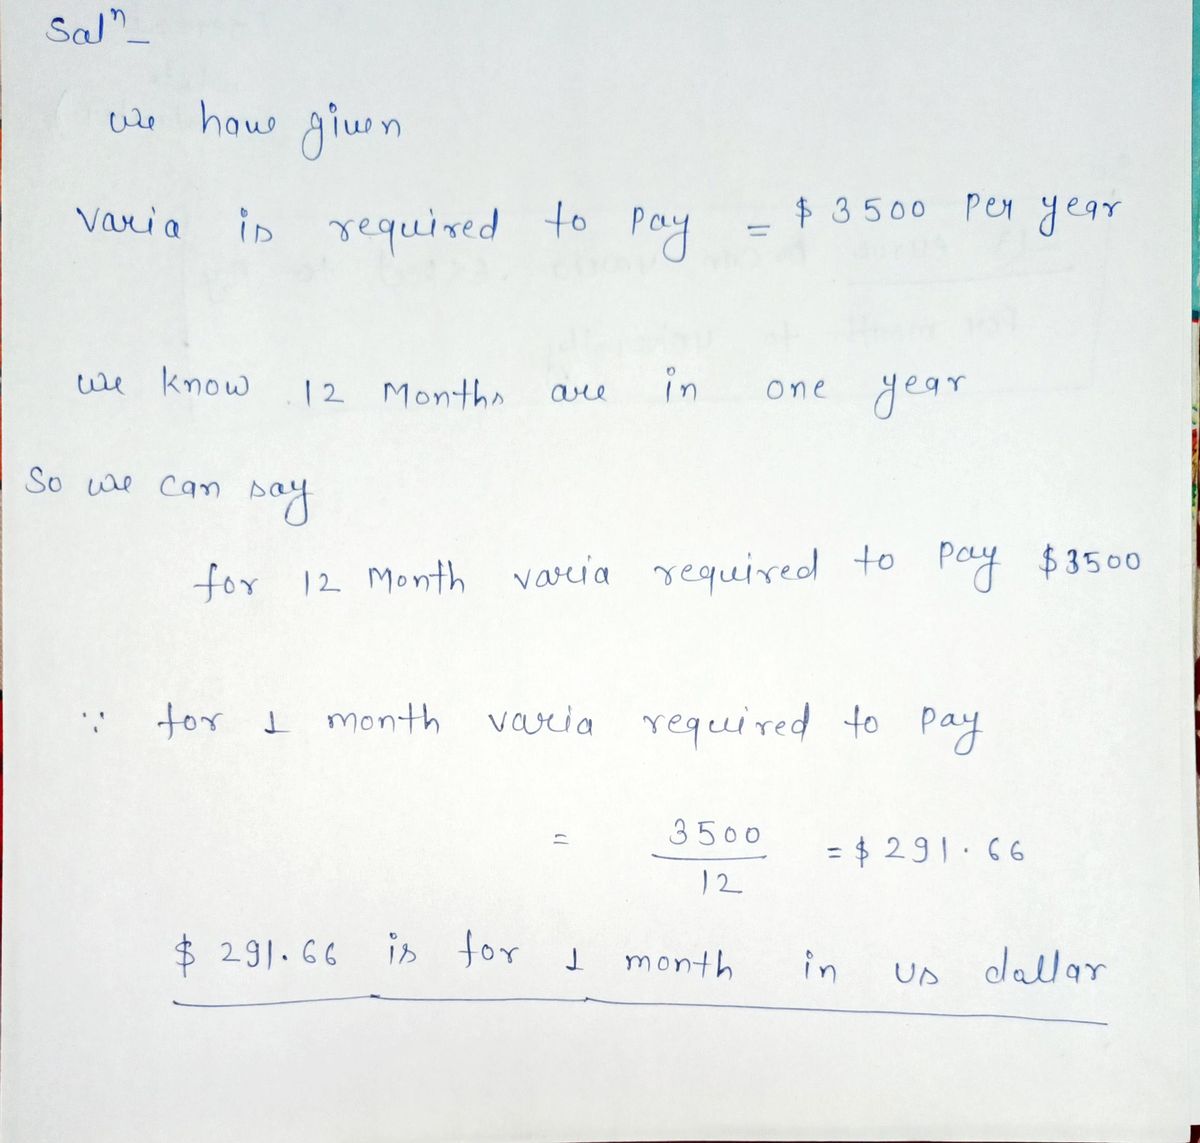 Salⁿ–
we have given
Varia is required to Pay = $ 3500 Per year
we know 12 Months are in one year
So we can say
for 12 Month varia required to Pay $3500
∵ for 1 month varia required to Pay
= 3500
12 = $ 291.66
$ 291.66 is for 1 month in us dallar